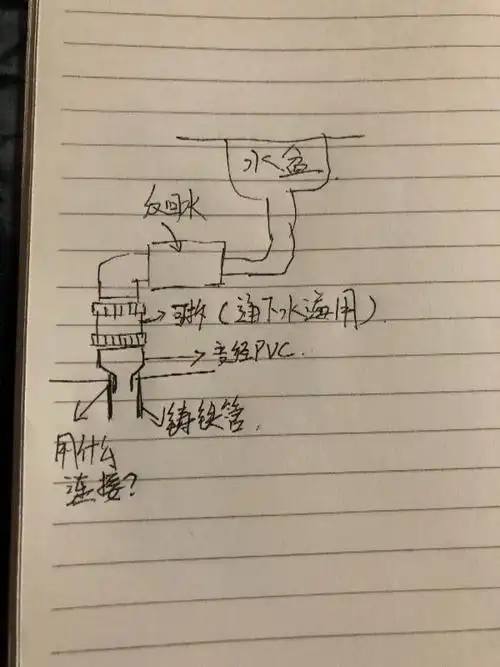 水盆
反回水
可拆（通下水道用）
变径PVC.
铸铁管.
用什么
连接？